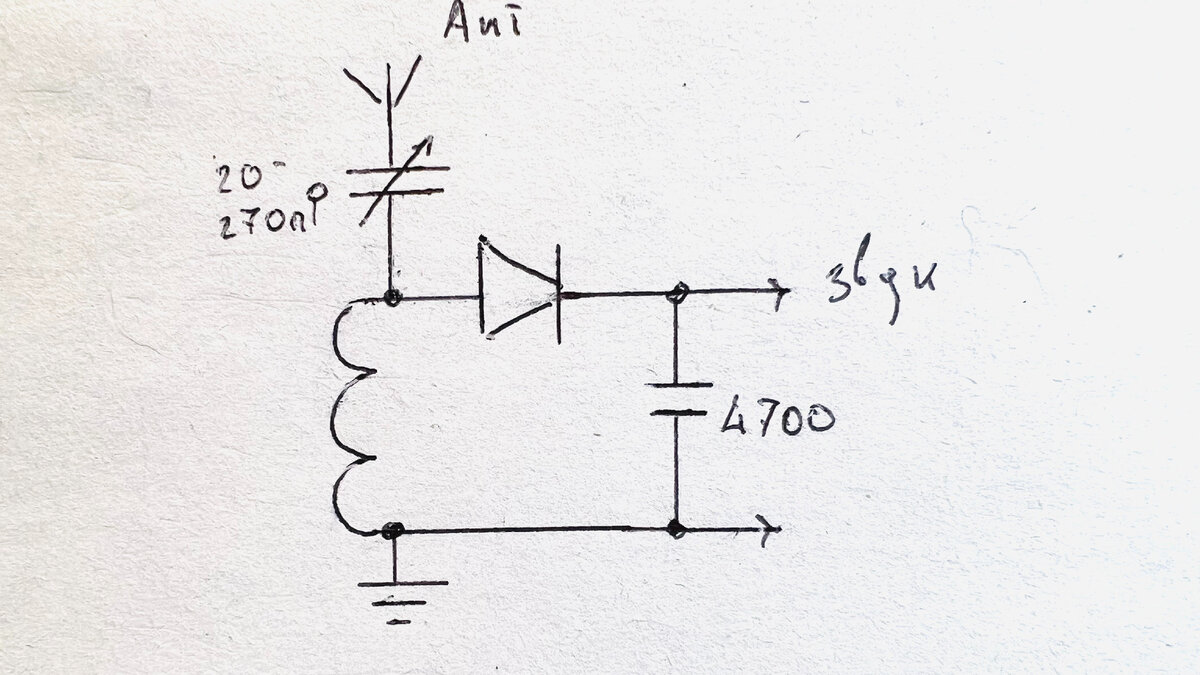 Ант
20-
270пф
звук
4700